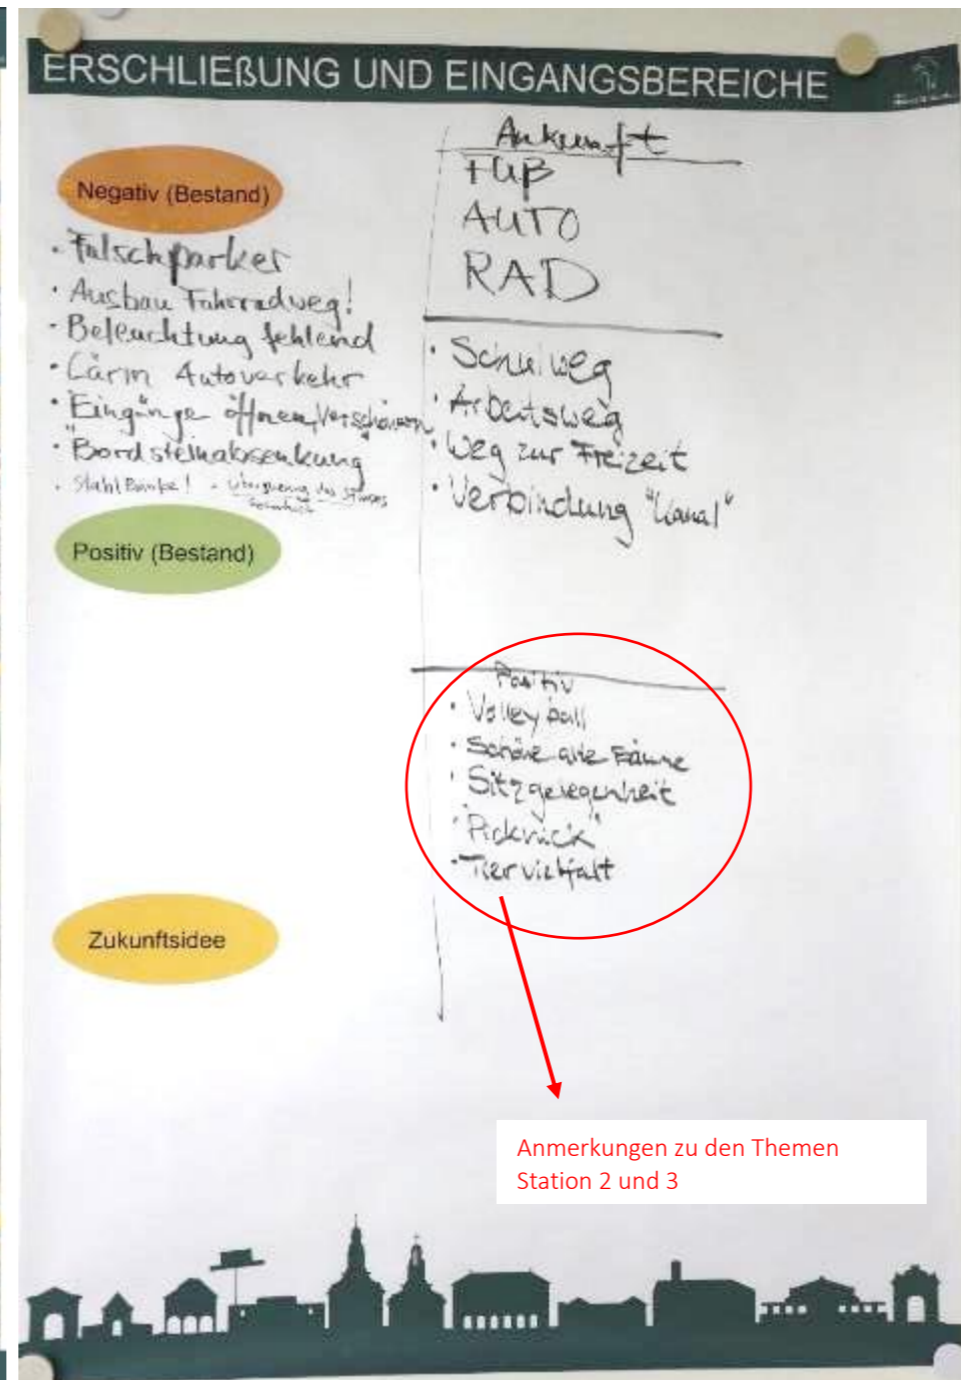 ERSCHLIEßUNG UND EINGANGSBEREICHE
Negativ (Bestand)
• Falschparker
• Ausbau Fahrradweg!
• Beleuchtung fehlend
• Lärm Autoverkehr
• Eingänge öffnen, Verschönern
• Bordsteinabsenkung
• Stahl Bänke!
Positiv (Bestand)
Zukunftsidee
Ankunft
FUß
AUTO
RAD
• Schulweg
• Arbeitsweg
• Weg zur Freizeit
• Verbindung "Kanal"
Positiv
• Volleyball
• Schöne alte Bäume
• Sitzgelegenheit
• "Picknick"
• Tiervielfalt
Anmerkungen zu den Themen
Station 2 und 3